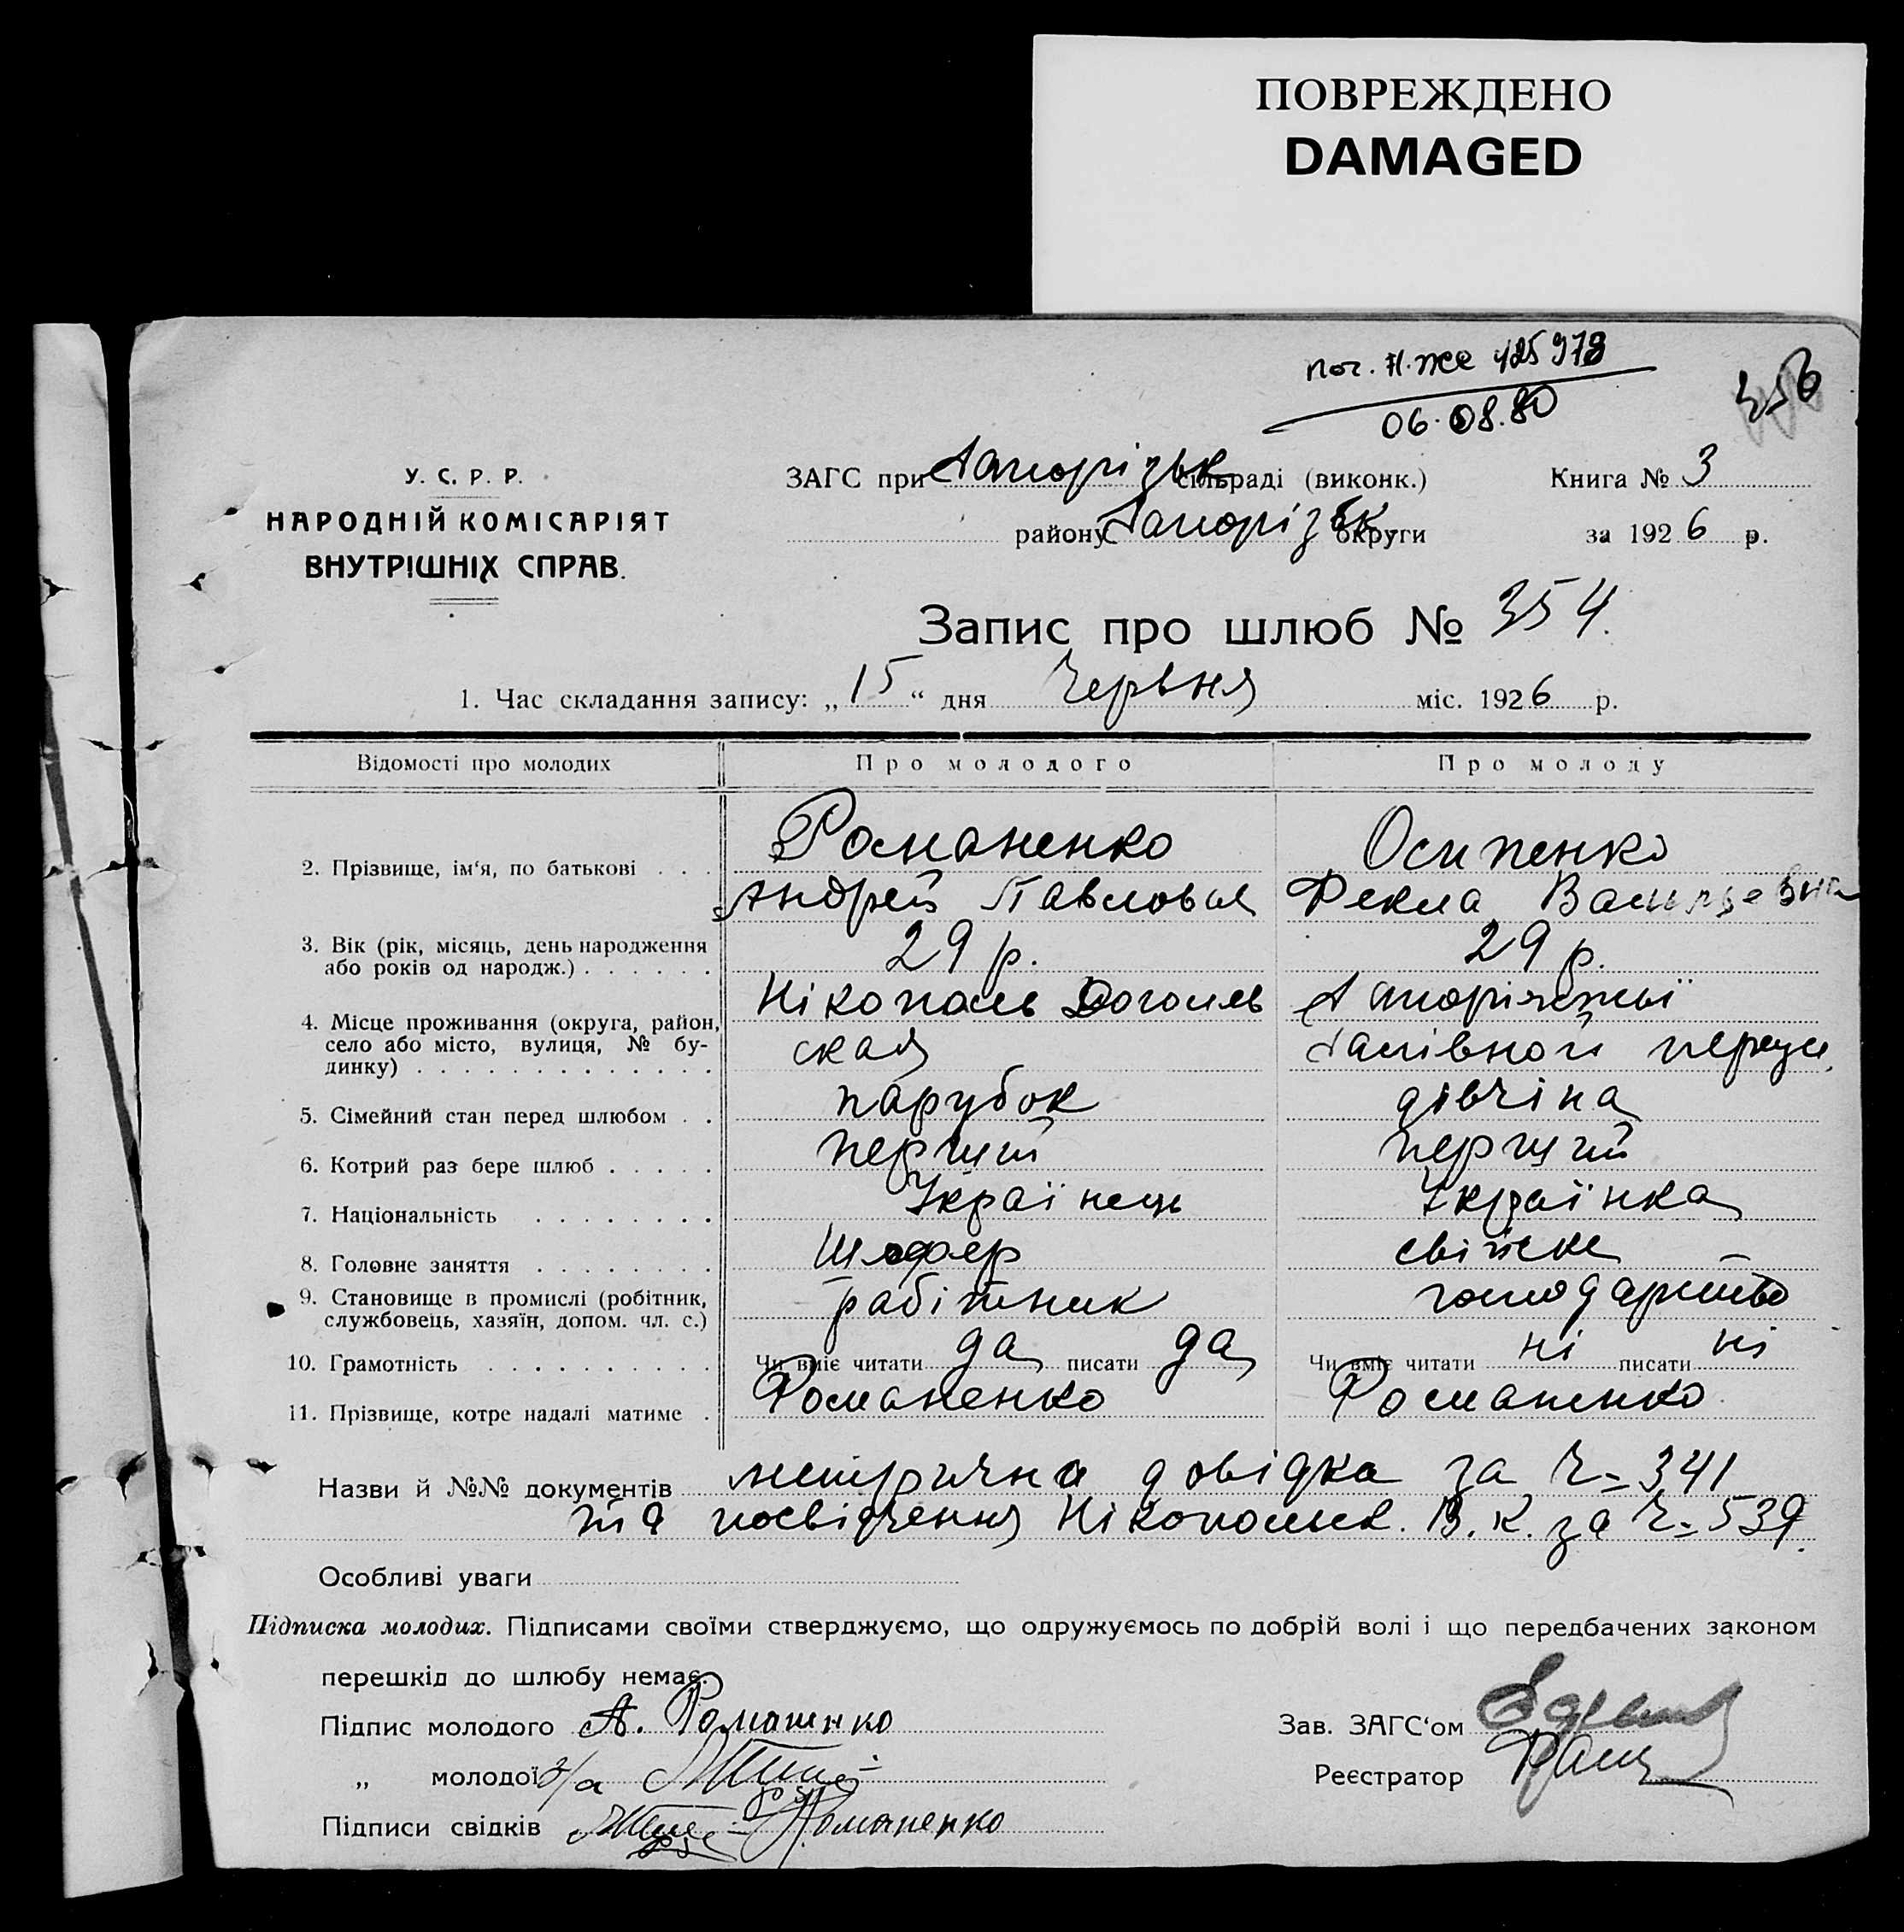 ПОВРЕЖДЕНО
DAMAGED
06.08.80
356
У. С. Р. Р.
НАРОДНІЙ КОМІСАРІЯТ
ВНУТРІШНІХ СПРАВ.
ЗАГС при Запорізьк сільраді (виконк.)
Книга № 3
району Запорізьк округи
за 1926 р.
Запис про шлюб № 354.
1. Час складання запису: „15“ дня Червня міс. 1926 р.
Відомості про молодих
Про молодого
Про молоду
2. Прізвище, ім‘я, по батькові . . .
Романенко
Андрей Павлович
Осипенко
Фекла Васильевна
3. Вік (рік, місяць, день народження
або років од народж.) . . . . . .
29 р.
29 р.
4. Місце проживання (округа, район,
село або місто, вулиця, № бу-
динку) . . . . . . . . . . . . .
Нікополь Гоголев
ская
Запоріжжі
5. Сімейний стан перед шлюбом . .
парубок
дівчіна
6. Котрий раз бере шлюб . . . . .
перший
перший
7. Національність . . . . . . . .
Українець
Українка
8. Головне заняття . . . . . . . .
Шофер
свійске
9. Становище в промислі (робітник,
службовець, хазяїн, допом. чл. с.)
рабітник
господарство
10. Грамотність . . . . . . . . . .
Чи вміє читати да писати да
Чи вміє читати ні писати ні
11. Прізвище, котре надалі матиме .
Романенко
Романенко
Назви й №№ документів метрична довідка за Ч= 341
та посвідчення Нікопольск. В. К. за Ч= 539.
Особливі уваги
Підписка молодих. Підписами своїми стверджуємо, що одружуємось по добрій волі і що передбачених законом
перешкід до шлюбу немає.
Підпис молодого А. Романенко
„ молодої з/а
Підписи свідків Романенко
Зав. ЗАГС‘ом
Реєстратор